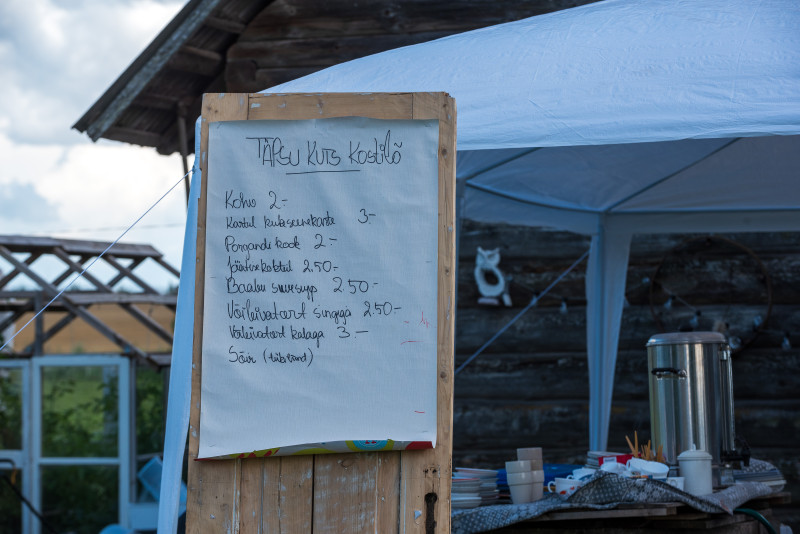 TÄPSU KUTS KOSTILÕ
Kohv 2.-
Kartul kukeseenekaste 3.-
Porgandi kook 2.-
Jäätisekokteil 2.50.-
Baabu suursupp 2.50.-
Võileivatort singiga 2.50.-
Võileivatort kalaga 3.-
Sõir